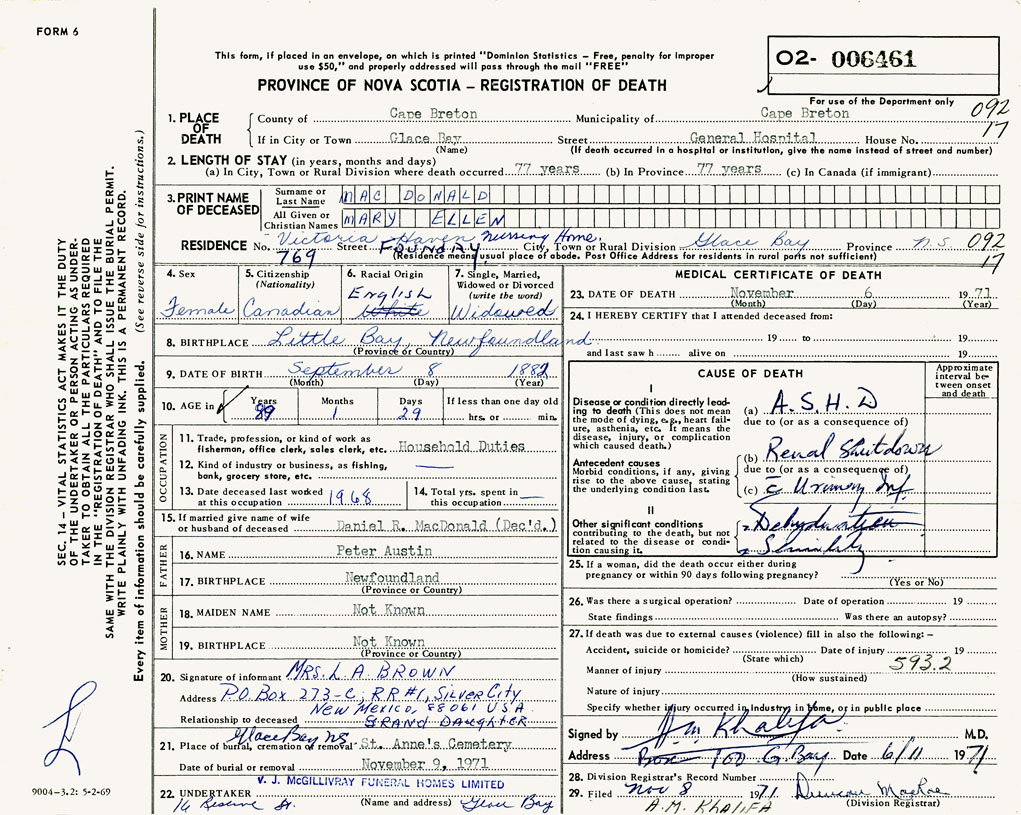 FORM 6
This form, if placed in an envelope, on which is printed "Dominion Statistics – Free, penalty for improper
use $50," and properly addressed will pass through the mail "FREE"
O2- 006461
PROVINCE OF NOVA SCOTIA – REGISTRATION OF DEATH
For use of the Department only
092
17
1. PLACE OF DEATH
County of Cape Breton Municipality of Cape Breton
If in City or Town Glace Bay Street General Hospital House No.
(Name) (If death occurred in a hospital or institution, give the name instead of street and number)
2. LENGTH OF STAY (in years, months and days)
(a) In City, Town or Rural Division where death occurred 77 years (b) In Province 77 years (c) In Canada (if immigrant)
3. PRINT NAME OF DECEASED
Surname or Last Name MAC DONALD
All Given or Christian Names MARY ELLEN
Victoria Haven Nursing Home.
RESIDENCE No. 769 Street FOUNDAY City, Town or Rural Division Glace Bay Province N.S. 092
(Residence means usual place of abode. Post Office Address for residents in rural parts not sufficient) 17
4. Sex
Female
5. Citizenship
(Nationality)
Canadian
6. Racial Origin
English
White
7. Single, Married,
Widowed or Divorced
(write the word)
Widowed
8. BIRTHPLACE Little Bay, Newfoundland
(Province or Country)
9. DATE OF BIRTH September 8 1882
(Month) (Day) (Year)
10. AGE in Years 89 Months 1 Days 29 If less than one day old
hrs. or min.
OCCUPATION
11. Trade, profession, or kind of work as
fisherman, office clerk, sales clerk, etc. Household Duties
12. Kind of industry or business, as fishing,
bank, grocery store, etc.
13. Date deceased last worked
at this occupation 1968
14. Total yrs. spent in
this occupation
15. If married give name of wife
or husband of deceased Daniel R. MacDonald (Dec'd.)
FATHER
16. NAME Peter Austin
17. BIRTHPLACE Newfoundland
(Province or Country)
MOTHER
18. MAIDEN NAME Not Known
19. BIRTHPLACE Not Known
(Province or Country)
20. Signature of informant MRS. L. A. BROWN
Address P.O. Box 273-C, RR#1, SILVER CITY
NEW MEXICO, 88061 U.S.A.
Relationship to deceased GRAND DAUGHTER
Glace Bay NS
21. Place of burial, cremation or removal St. Anne's Cemetery
Date of burial or removal November 9, 1971
V. J. McGILLIVRAY FUNERAL HOMES LIMITED
22. UNDERTAKER (Name and address)
16 Reserve St. Glace Bay
MEDICAL CERTIFICATE OF DEATH
23. DATE OF DEATH November 6 1971
(Month) (Day) (Year)
24. I HEREBY CERTIFY that I attended deceased from:
19 to 19
and last saw h alive on 19
CAUSE OF DEATH
Approximate
interval be-
tween onset
and death
I
Disease or condition directly lead-
ing to death (This does not mean
the mode of dying, e.g., heart fail-
ure, asthenia, etc. It means the
disease, injury, or complication
which caused death.)
(a) A.S.H.D
due to (or as a consequence of)
Antecedent causes
Morbid conditions, if any, giving
rise to the above cause, stating
the underlying condition last.
(b) Renal Shutdown
due to (or as a consequence of)
(c) c̄ Urinary Inf.
II
Other significant conditions
contributing to the death, but not
related to the disease or condi-
tion causing it.
Dehydration
Senility
25. If a woman, did the death occur either during
pregnancy or within 90 days following pregnancy?
(Yes or No)
26. Was there a surgical operation? Date of operation 19
State findings Was there an autopsy?
27. If death was due to external causes (violence) fill in also the following: –
Accident, suicide or homicide? Date of injury 19
(State which) 593.2
Manner of injury
(How sustained)
Nature of injury
Specify whether injury occurred in industry, in home, or in public place
Signed by A.M. Khalifa M.D.
Address Box 100 G. Bay Date 6/11 1971
28. Division Registrar's Record Number
29. Filed Nov 8 1971 Duncan MacRae
(Division Registrar)
A.M. KHALIFA
SEC. 14 – VITAL STATISTICS ACT MAKES IT THE DUTY
OF THE UNDERTAKER OR PERSON ACTING AS UNDER-
TAKER TO OBTAIN ALL THE PARTICULARS REQUIRED
IN THE "REGISTRATION OF DEATH" AND TO FILE THE
SAME WITH THE DIVISION REGISTRAR WHO SHALL ISSUE THE BURIAL PERMIT.
WRITE PLAINLY WITH UNFADING INK. THIS IS A PERMANENT RECORD.
Every item of information should be carefully supplied. (See reverse side for instructions.)
9004–3.2: 5-2-69